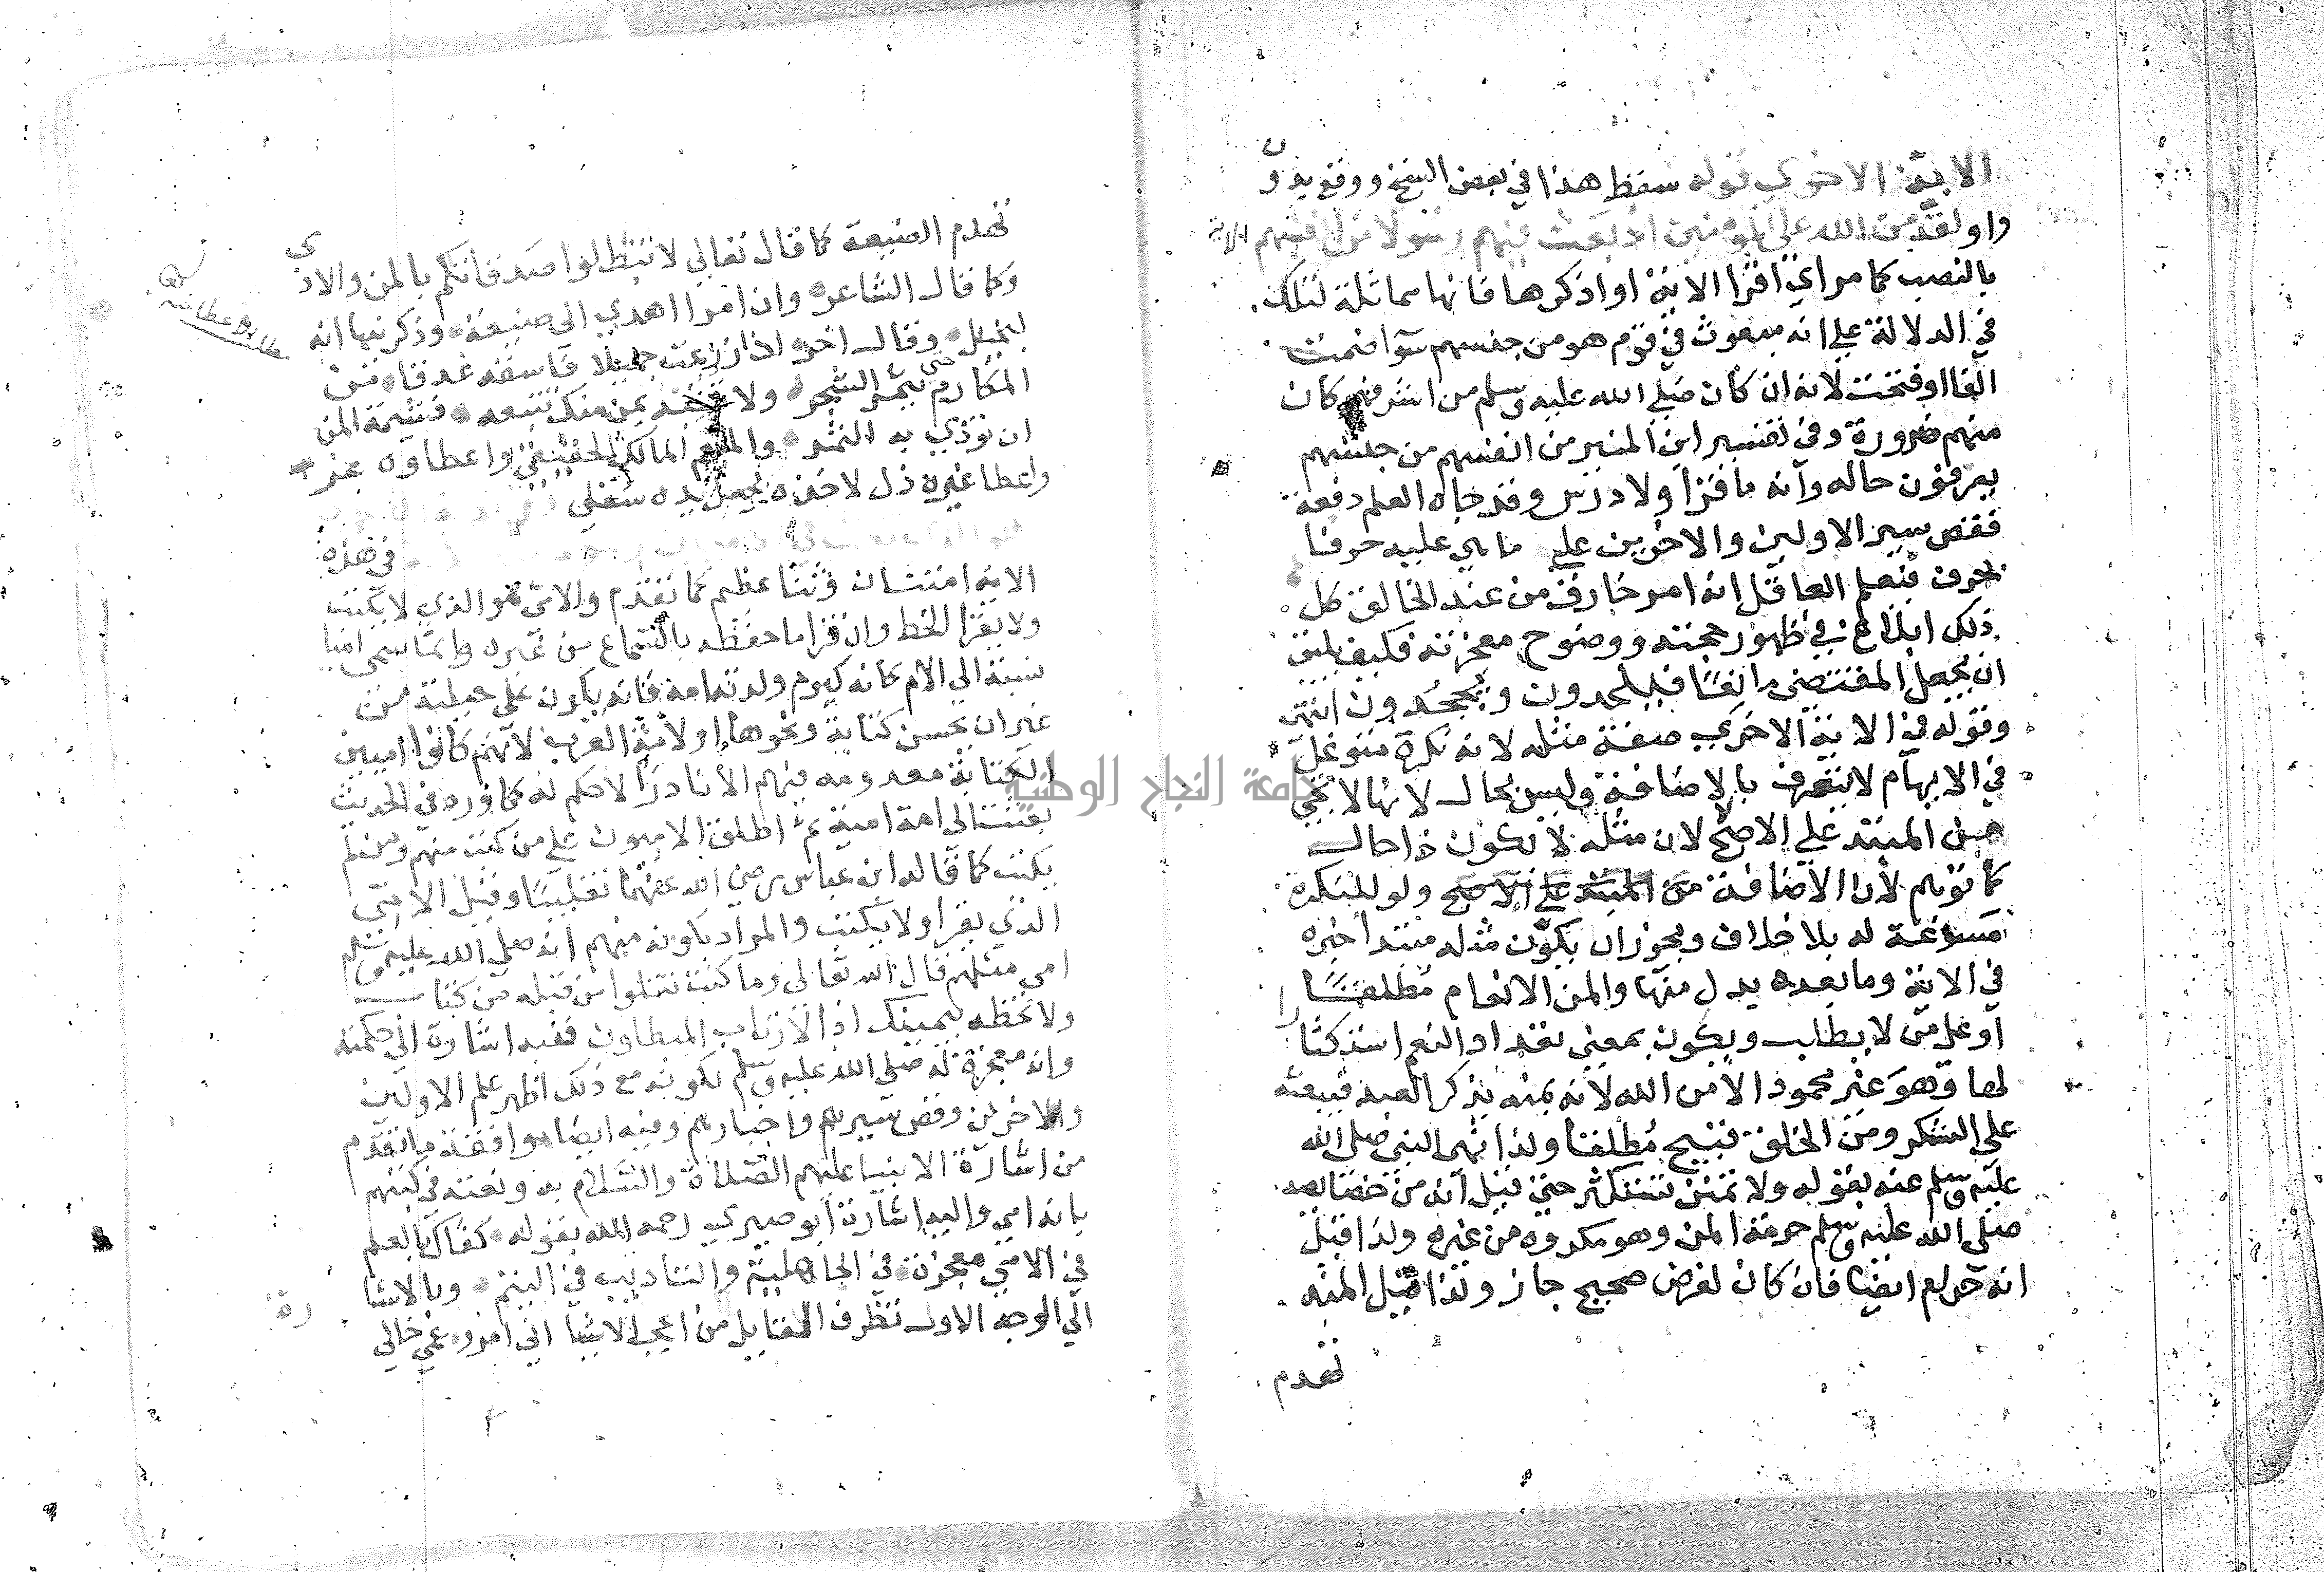 الاية الاخري قوله سقط هذا في بعض النسخ ووقع بدون
واو لقد من الله علي المومنين اذ بعث فيهم رسولا من انفسهم الاية
بالنصب كما مر اي اقرا الاية او اذكرها فانها مماثلة لتلك
في الدلالة علي انه مبعوث في قوم هو من جنسهم سوا ضمت
الفا او فتحت لانه ان كان صلي الله عليه وسلم من اشرفهم كان
منهم ضرورة وفي تفسير ابن المنير من انفسهم من جنسهم
يعرفون حاله وانه ما قرا ولا درس وقد جاه العلم دفعة
فقص سير الاولين والاخرين علي ما هي عليه حرفا
بحرف فيعلم العاقل انه امر خارق من عند الخالق كل
ذلك ابلاغ في ظهور حجته ووضوح معجزته فكيف يليق
ان يجعل المقتضي مانعا فيلحدون ويجحدون انتهي
وقوله في الاية الاخري صفة مثله لانه نكرة متوغل
في الابهام لا يتعرف بالاضافة وليس بحال لانها لا تجي
من المبتد علي الاصح لا لان مثله لا يكون ذا حال
كما توهم لان الاضافة من المبتد علي الاصح ولو للنكرة
مسوغة له بلا خلاف ويجوز ان يكون مثله مبتدا خبره
في الاية وما بعده بدل منها والمن الانعام مطلقا
او علي من لا يطلب ويكون بمعني تعداد النعم استذكثارا
لها وهو غير محمود الا من الله لانه بمنه يذكر العبد فيبعثه
علي الشكر ومن الخلق قبيح مطلقا ولذا نهي النبي صلي الله
عليه وسلم عنه بقوله ولا تمنن تستكثر حتي قيل انه من خصايصه
صلي الله عليه وسلم حرمة المن وهو مكروه من غيره ولذا قيل
انه حرام ايضا فان كان لغرض صحيح جاز ولذا قيل المنه
تهدم
تهدم الصنيعة كما قال تعالي لا تبطلوا صدقاتكم بالمن والاذي
وكما قال الشاعر وان امرا اهدي الي صنيعة وذكرنيها انه
لبخيل وقال اخر اذا زرعت جميلا فاسقه غدقا من
المكارم حتي يثمر الشجر ولا تشنه بمن منك تتبعه فشيمة المن
ان توذي به الثمر والمنعم المالك الحقيقي واعطاوه عز
واعطا غيره ذل لاخذه يجعل يده سفلي
في هذه
الاية امتنان وثنا عظيم كما تقدم والامي هو الذي لا يكتب
ولا يقرا الخط وان قرا ما حفظه بالسماع من غيره وانما سمي اميا
نسبة الي الام كانه كيوم ولدته امه فانه يكون علي جبلته من
غير ان يحسن كتابة ونحوها او لامة العرب لانهم كانوا اميين
الكتابة معدومه فيهم الا نادرا لا حكم له كما ورد في الحديث
بعثت الي امة امية ثم اطلق الاميون علي من كتب منهم ومن لم
يكتب كما قاله ابن عباس رضي الله عنهما تغليبا وقيل الامي
الذي يقرا ولا يكتب والمراد بكونه منهم انه صلي الله عليه وسلم
امي مثلهم قال الله تعالي وما كنت تتلوا من قبله من كتاب
ولا تخطه بيمينك اذا لارتاب المبطلون ففيه اشارة الي حكمته
وانه معجزة له صلي الله عليه وسلم لكونه مع ذلك اظهر علم الاولين
والاخرين وقص سيرهم واخبارهم وفيه ايضا موافقة ما تقدم
من اشارة الانبيا عليهم الصلاة والسلام به ونعته في كتبهم
بانه امي واليه اشارة ابو صيري رحمه الله بقوله كفاك بالعلم
في الامي معجزة في الجاهلية والتاديب في اليتم وبالاشا
رة
الي الوجه الاول نظرف القايل من اعجب الاشيا اني امرو عمي خالي
جامعة النجاح الوطنية